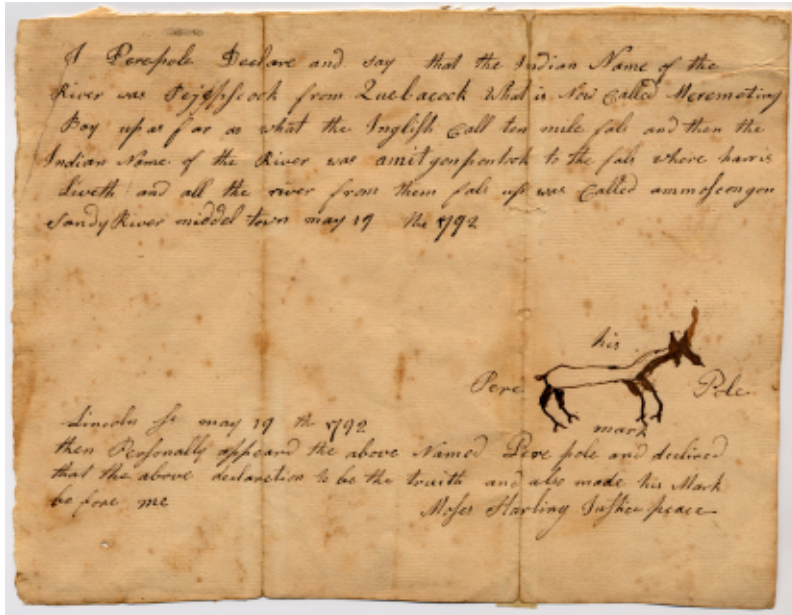 I Perepole Declare and say that the Indian Name of the
River was Pejepscock from Quebacock What is Now Called Meremeting
Bay up as far as what the Inglish Call ten mile fals and then the
Indian Name of the River was amitgonpontook to the fals where harris
Liveth and all the river from them fals up was Called ammoscongon
Sandy River middel town may 19 the 1792
his
Pere Pole
mark
Lincoln Ss may 19 th 1792
then Personally appeard the above Named Pere pole and declired
that the above declaration to be the truith and also made his Mark
be fore me Moses Starling Justice peace